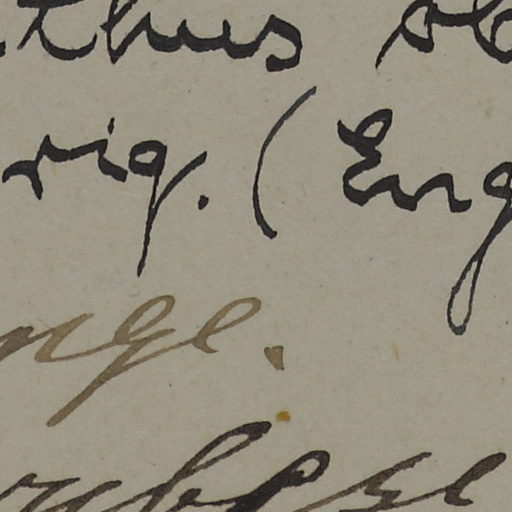 thus ob
rig. (Eng
nge.